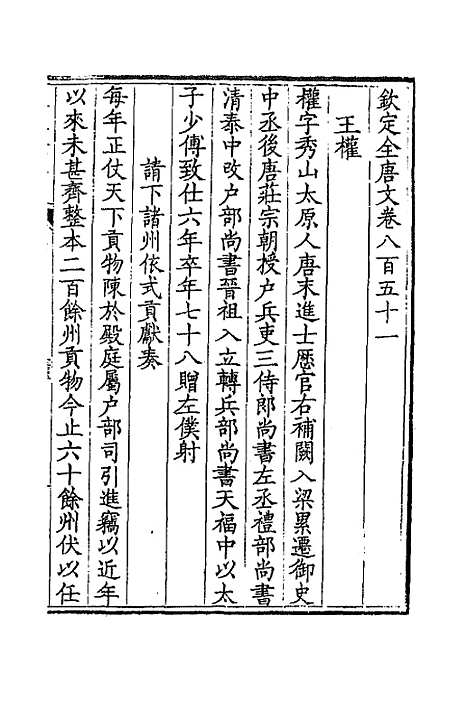 欽定全唐文卷八百五十一
王權
權字秀山太原人唐末進士歷官右補闕入梁累遷御史
中丞後唐莊宗朝授户兵吏三侍郎尚書左丞禮部尚書
清泰中改户部尚書晉祖入立轉兵部尚書天福中以太
子少傅致仕六年卒年七十八贈左僕射
請下諸州依式貢獻奏
每年正仗天下貢物陳於殿庭屬户部司引進竊以近年
以來未甚齊整本二百餘州貢物今止六十餘州伏以任